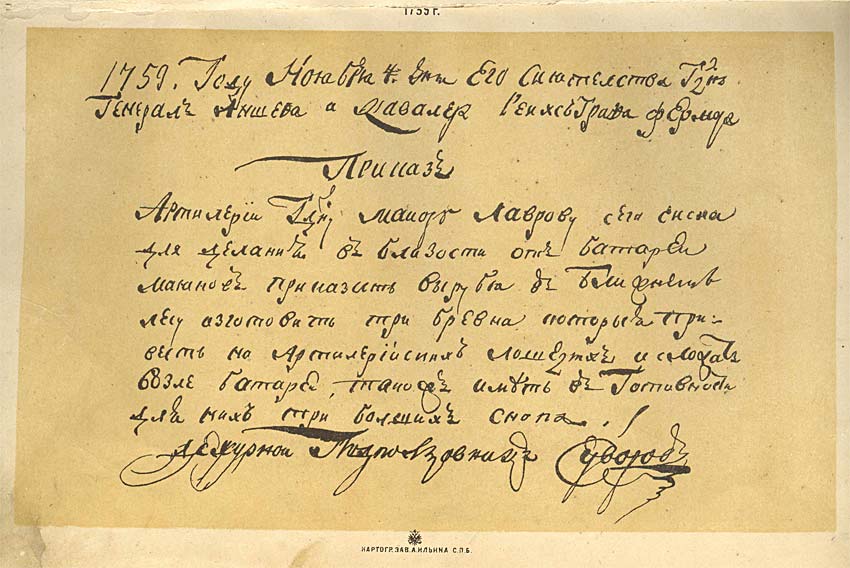 1759 г.
1759. Году Ноября 4. дня Его Сиятелства Гдна
Генералъ Аншева и Кавалер Реихсъ Графа Фермора
Приказъ
Артилерїи Гдну маиору Лаврову сего числа
для делания въ близости отъ батареи
маиаковъ приказать вырубя въ ближнемъ
лесу изготовить три бревна которыя при-
весть на Артилерїискихъ лошедяхъ и
возле батареи, такожъ иметь въ Готовности
для нихъ три болшихъ снопа
дежурнои Подполковникъ Суворовъ
КАРТОГР. ЗАВ. А. ИЛЬИНА С.П.Б.